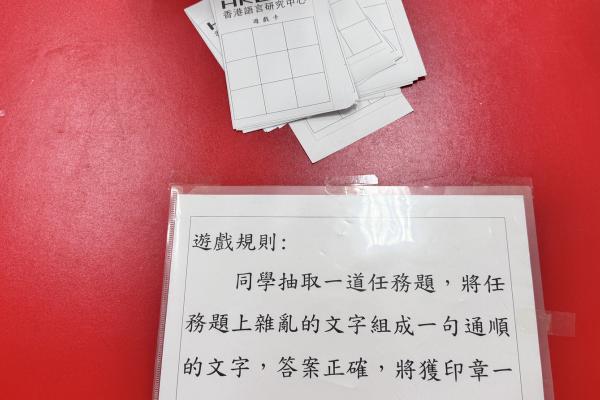 香港語言研究中心
遊戲卡
遊戲規則:
同學抽取一道任務題，將任
務題上雜亂的文字組成一句通順
的文字，答案正確，將獲印章一